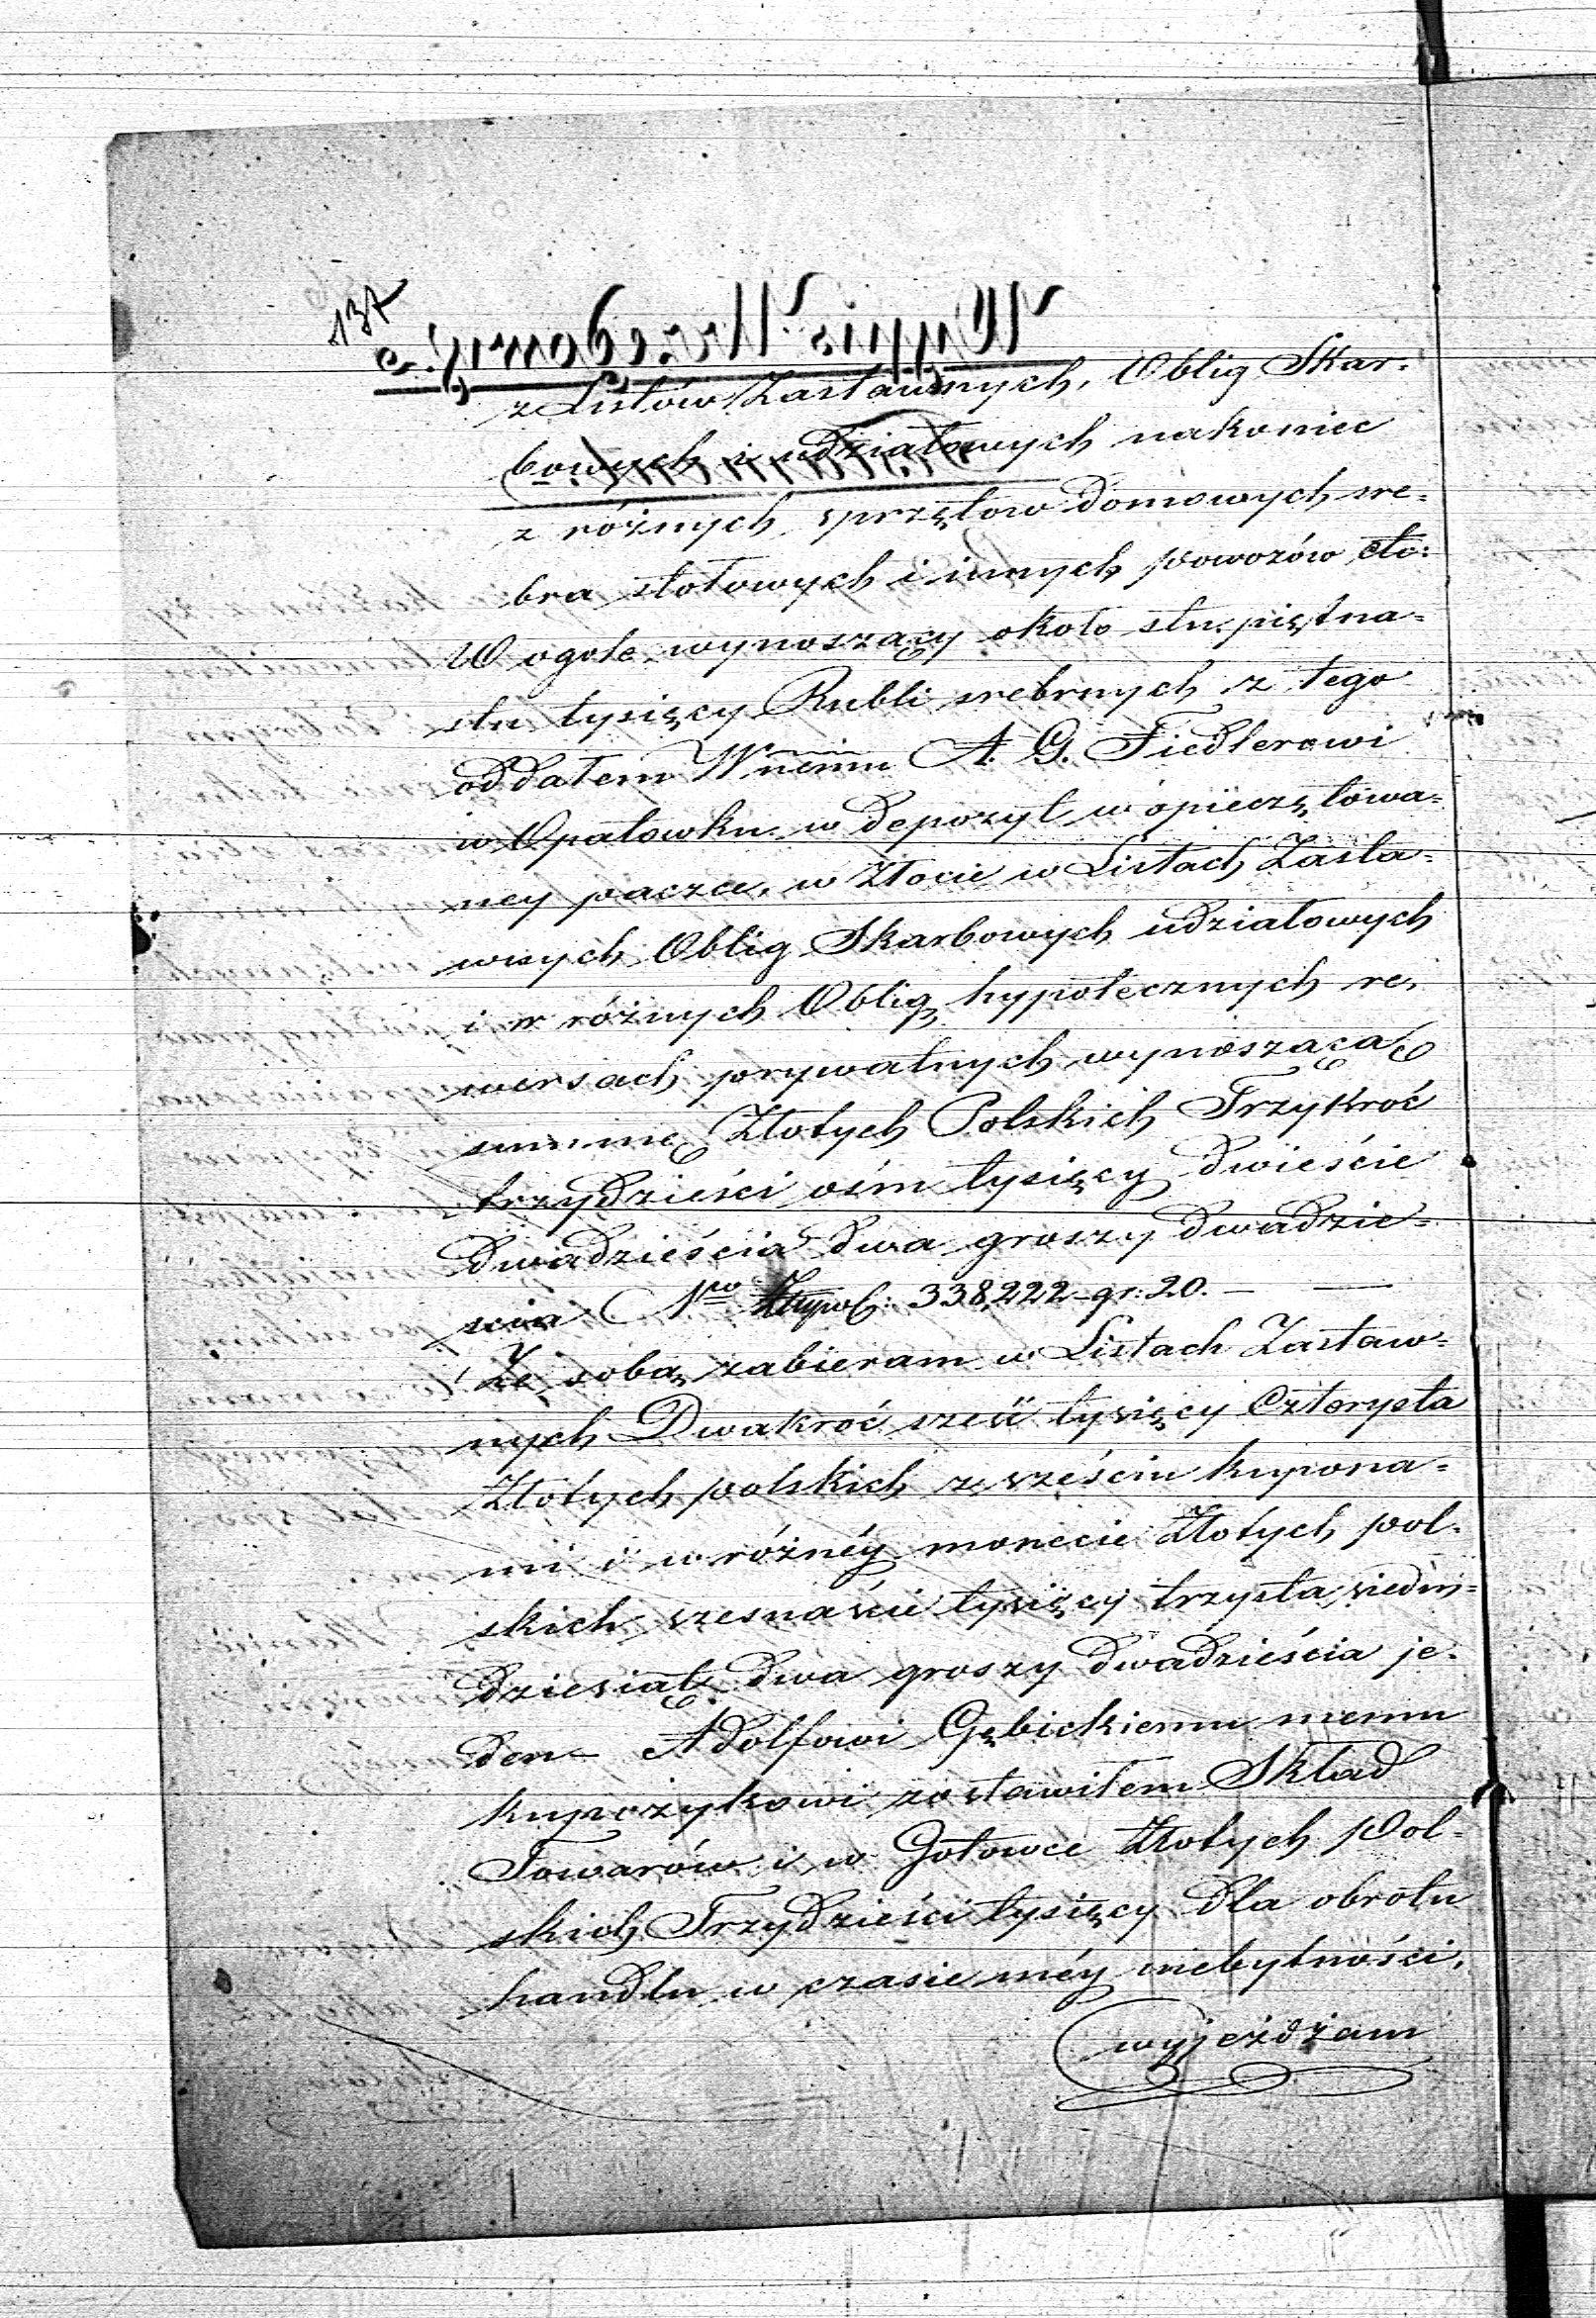 137
z Listów Zastawnych, Oblig Skar-
bowych i udziałowych nakoniec
z różnych sprzętow domowych sre-
bra stołowych i innych powozów etc:
W ogole wynoszący około stu piętna-
stu tysięcy Rubli srebrnych z tego
oddałem Wnemu A. G. Fiedlerowi
w Opatowku w depozyt w opieczętowa-
ney paczce, w Złocie w Listach Zasta-
wnych Oblig Skarbowych udziałowych
i w różnych Oblig hypotecznych re-
wersach prywatnych wynoszącą
summę Złotych Polskich Trzykroć
trzydzieści ośm tysięcy dwieście
dwadzieścia dwa groszy dwadzie-
scia 338,222 gr: 20. — —
Ze sobą zabieram w Listach Zastaw-
nych Dwakroć sześć tysięcy Czterysta
Złotych polskich ze sześciu kupona-
mi i w różnéy monecie Złotych pol-
skich szesnaście tysięcy trzysta siedm-
dziesiąt dwa groszy dwadzieścia je-
den — Adolfowi Gębickiemu memu
kupczykowi zostawiłem Skład
Towarów i w Gotowce Złotych Pol-
skich Trzydzieści tysięcy dla obrotu
handlu w czasie méy niebytności,
wyjeżdżam